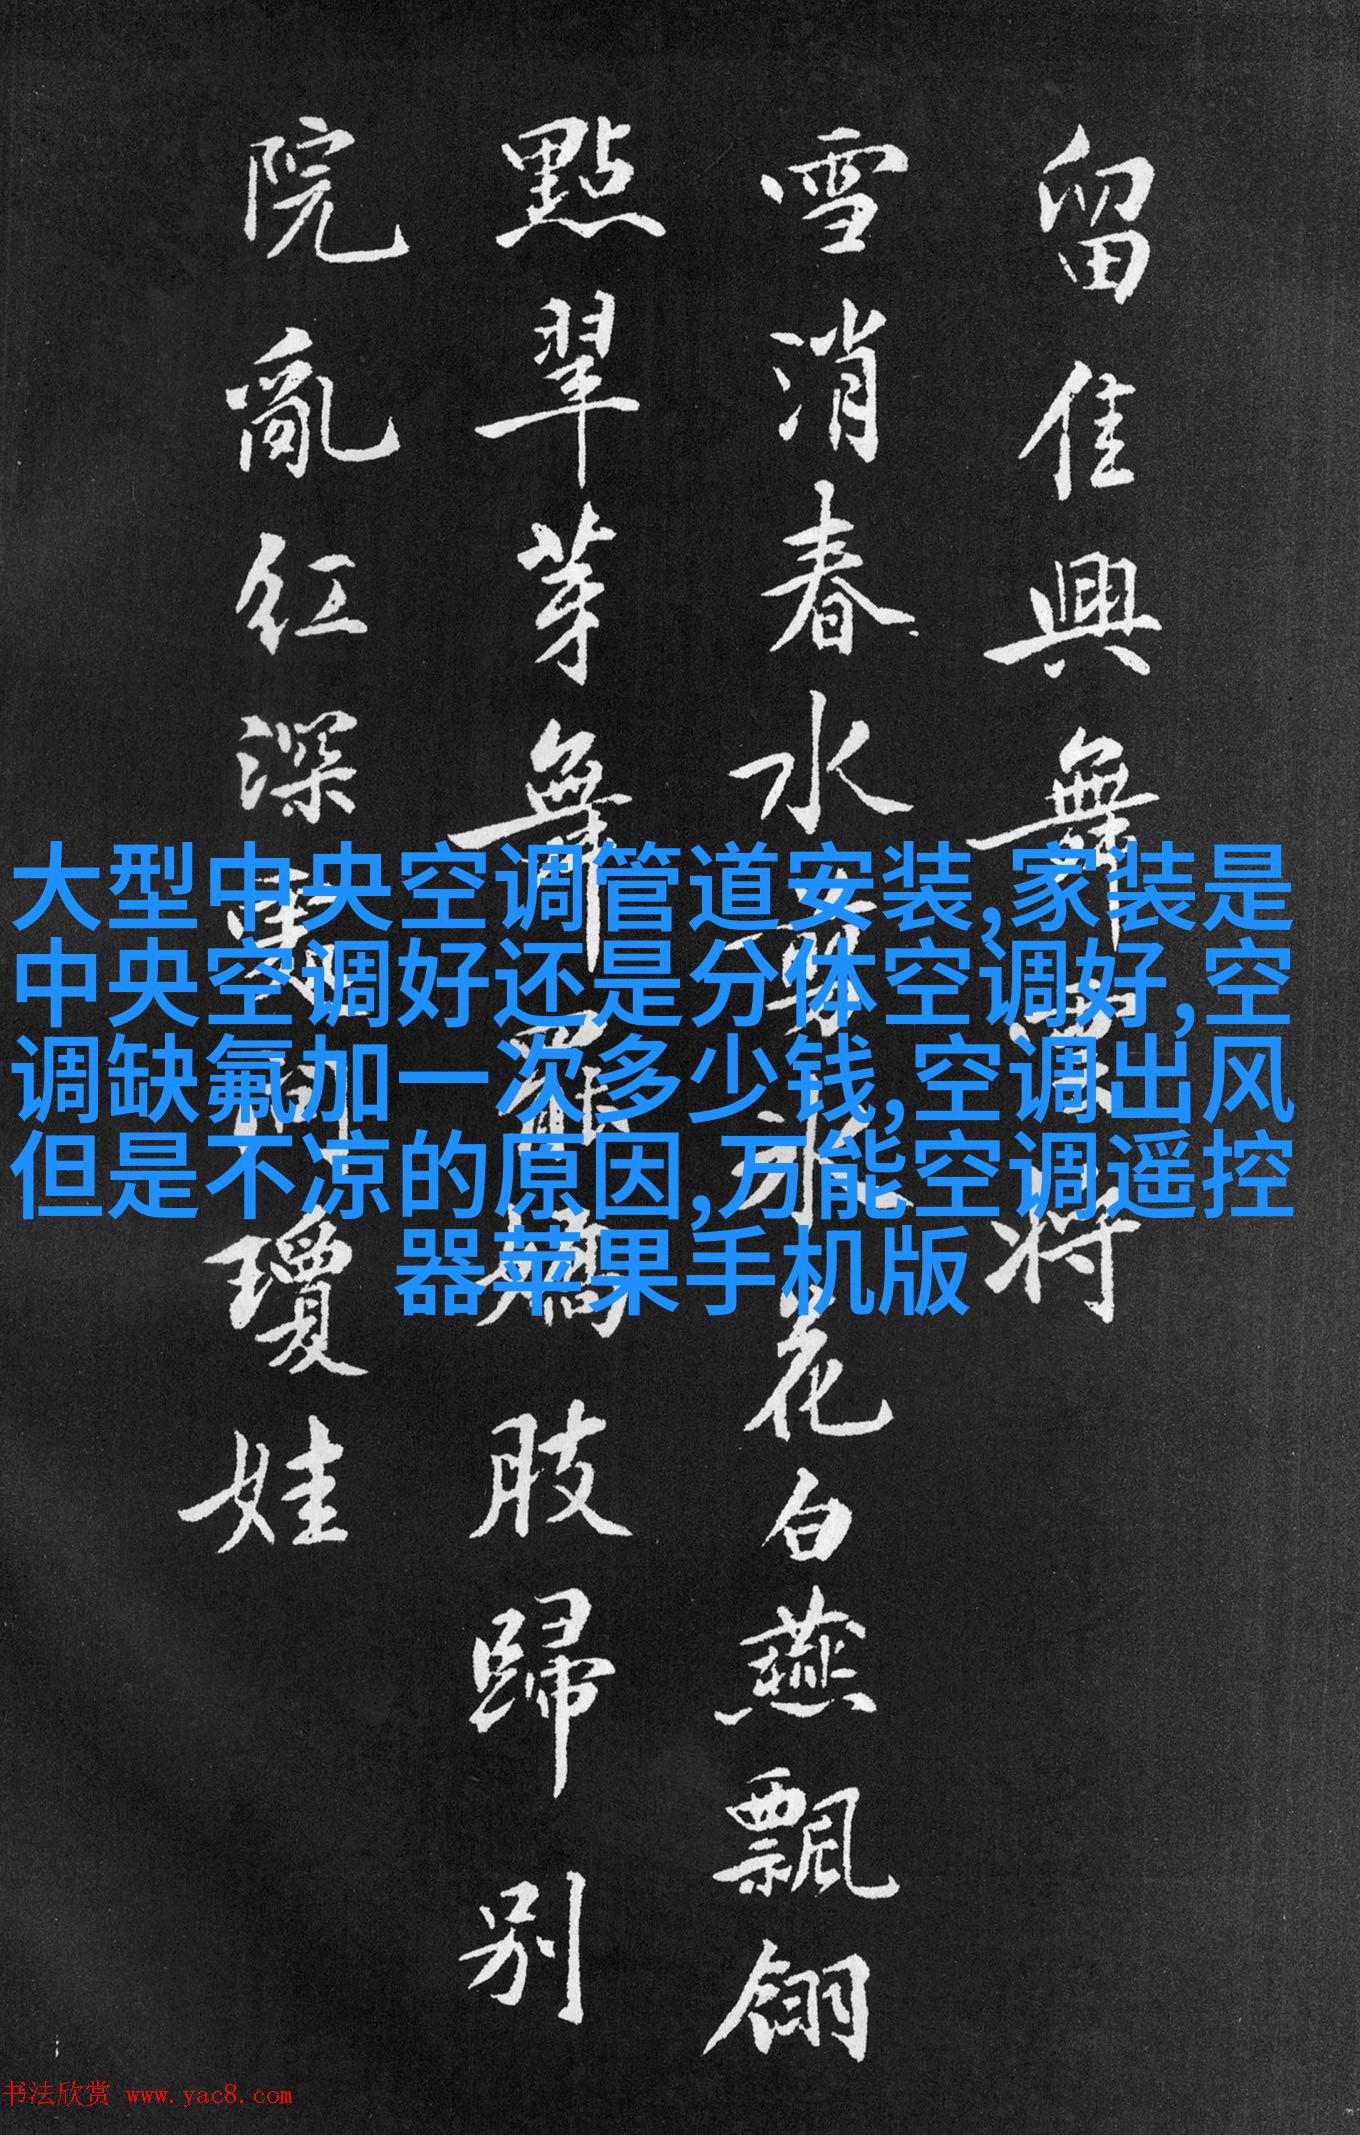 留佳興舞將
雪消春水花白燕飄翎
點翠芽舞罷嬌肢歸别
院亂紅深處問瓊娃
大型中央空调管道安装,家装是
中央空调好还是分体空调好,空
调缺氟加一次多少钱,空调出风
但是不凉的原因,万能空调遥控
器苹果手机版
书法欣赏 www.yac8.com